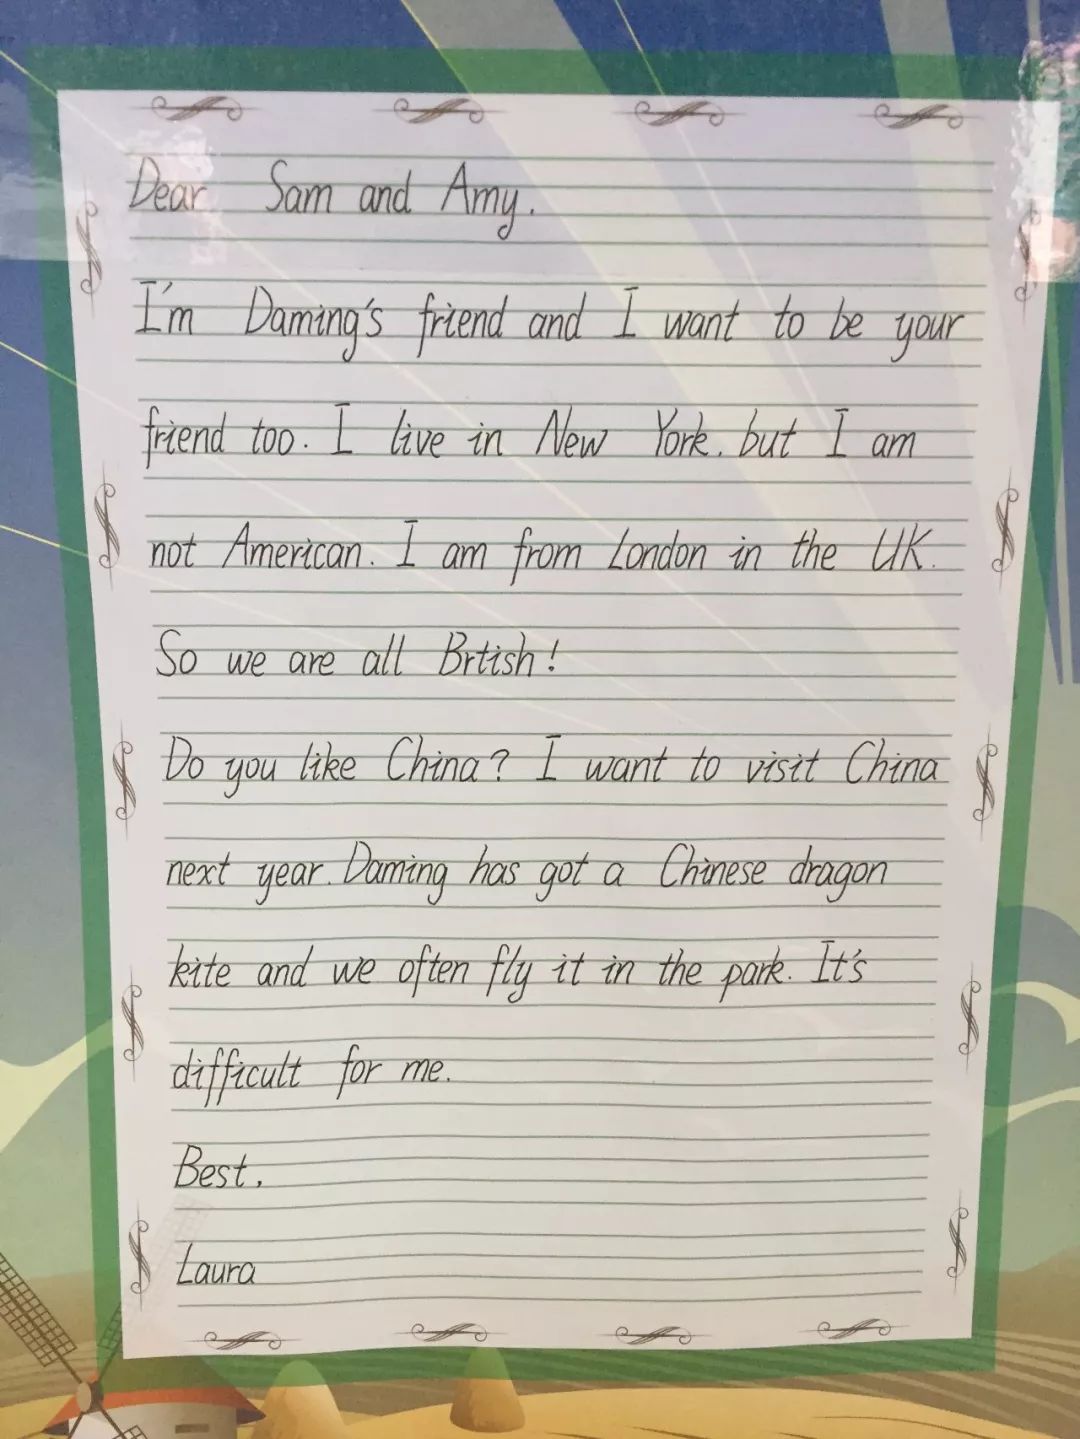 Dear Sam and Amy.
I'm Daming's friend and I want to be your
friend too. I live in New York. but I am
not American. I am from London in the UK.
So we are all Brtish!
Do you like China? I want to visit China
next year. Daming has got a Chinese dragon
kite and we often fly it in the park. It's
difficult for me.
Best,
Laura